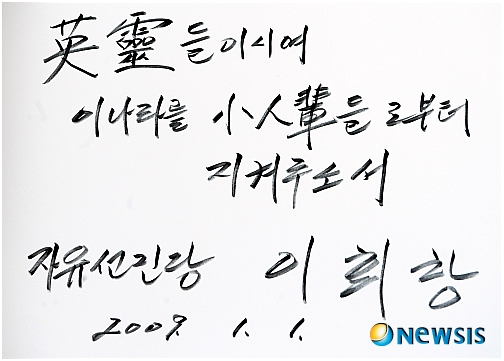 英靈들이시여
이나라를 小人輩들로부터
지켜주소서
자유선진당 이회창
2009. 1. 1.
NEWSIS